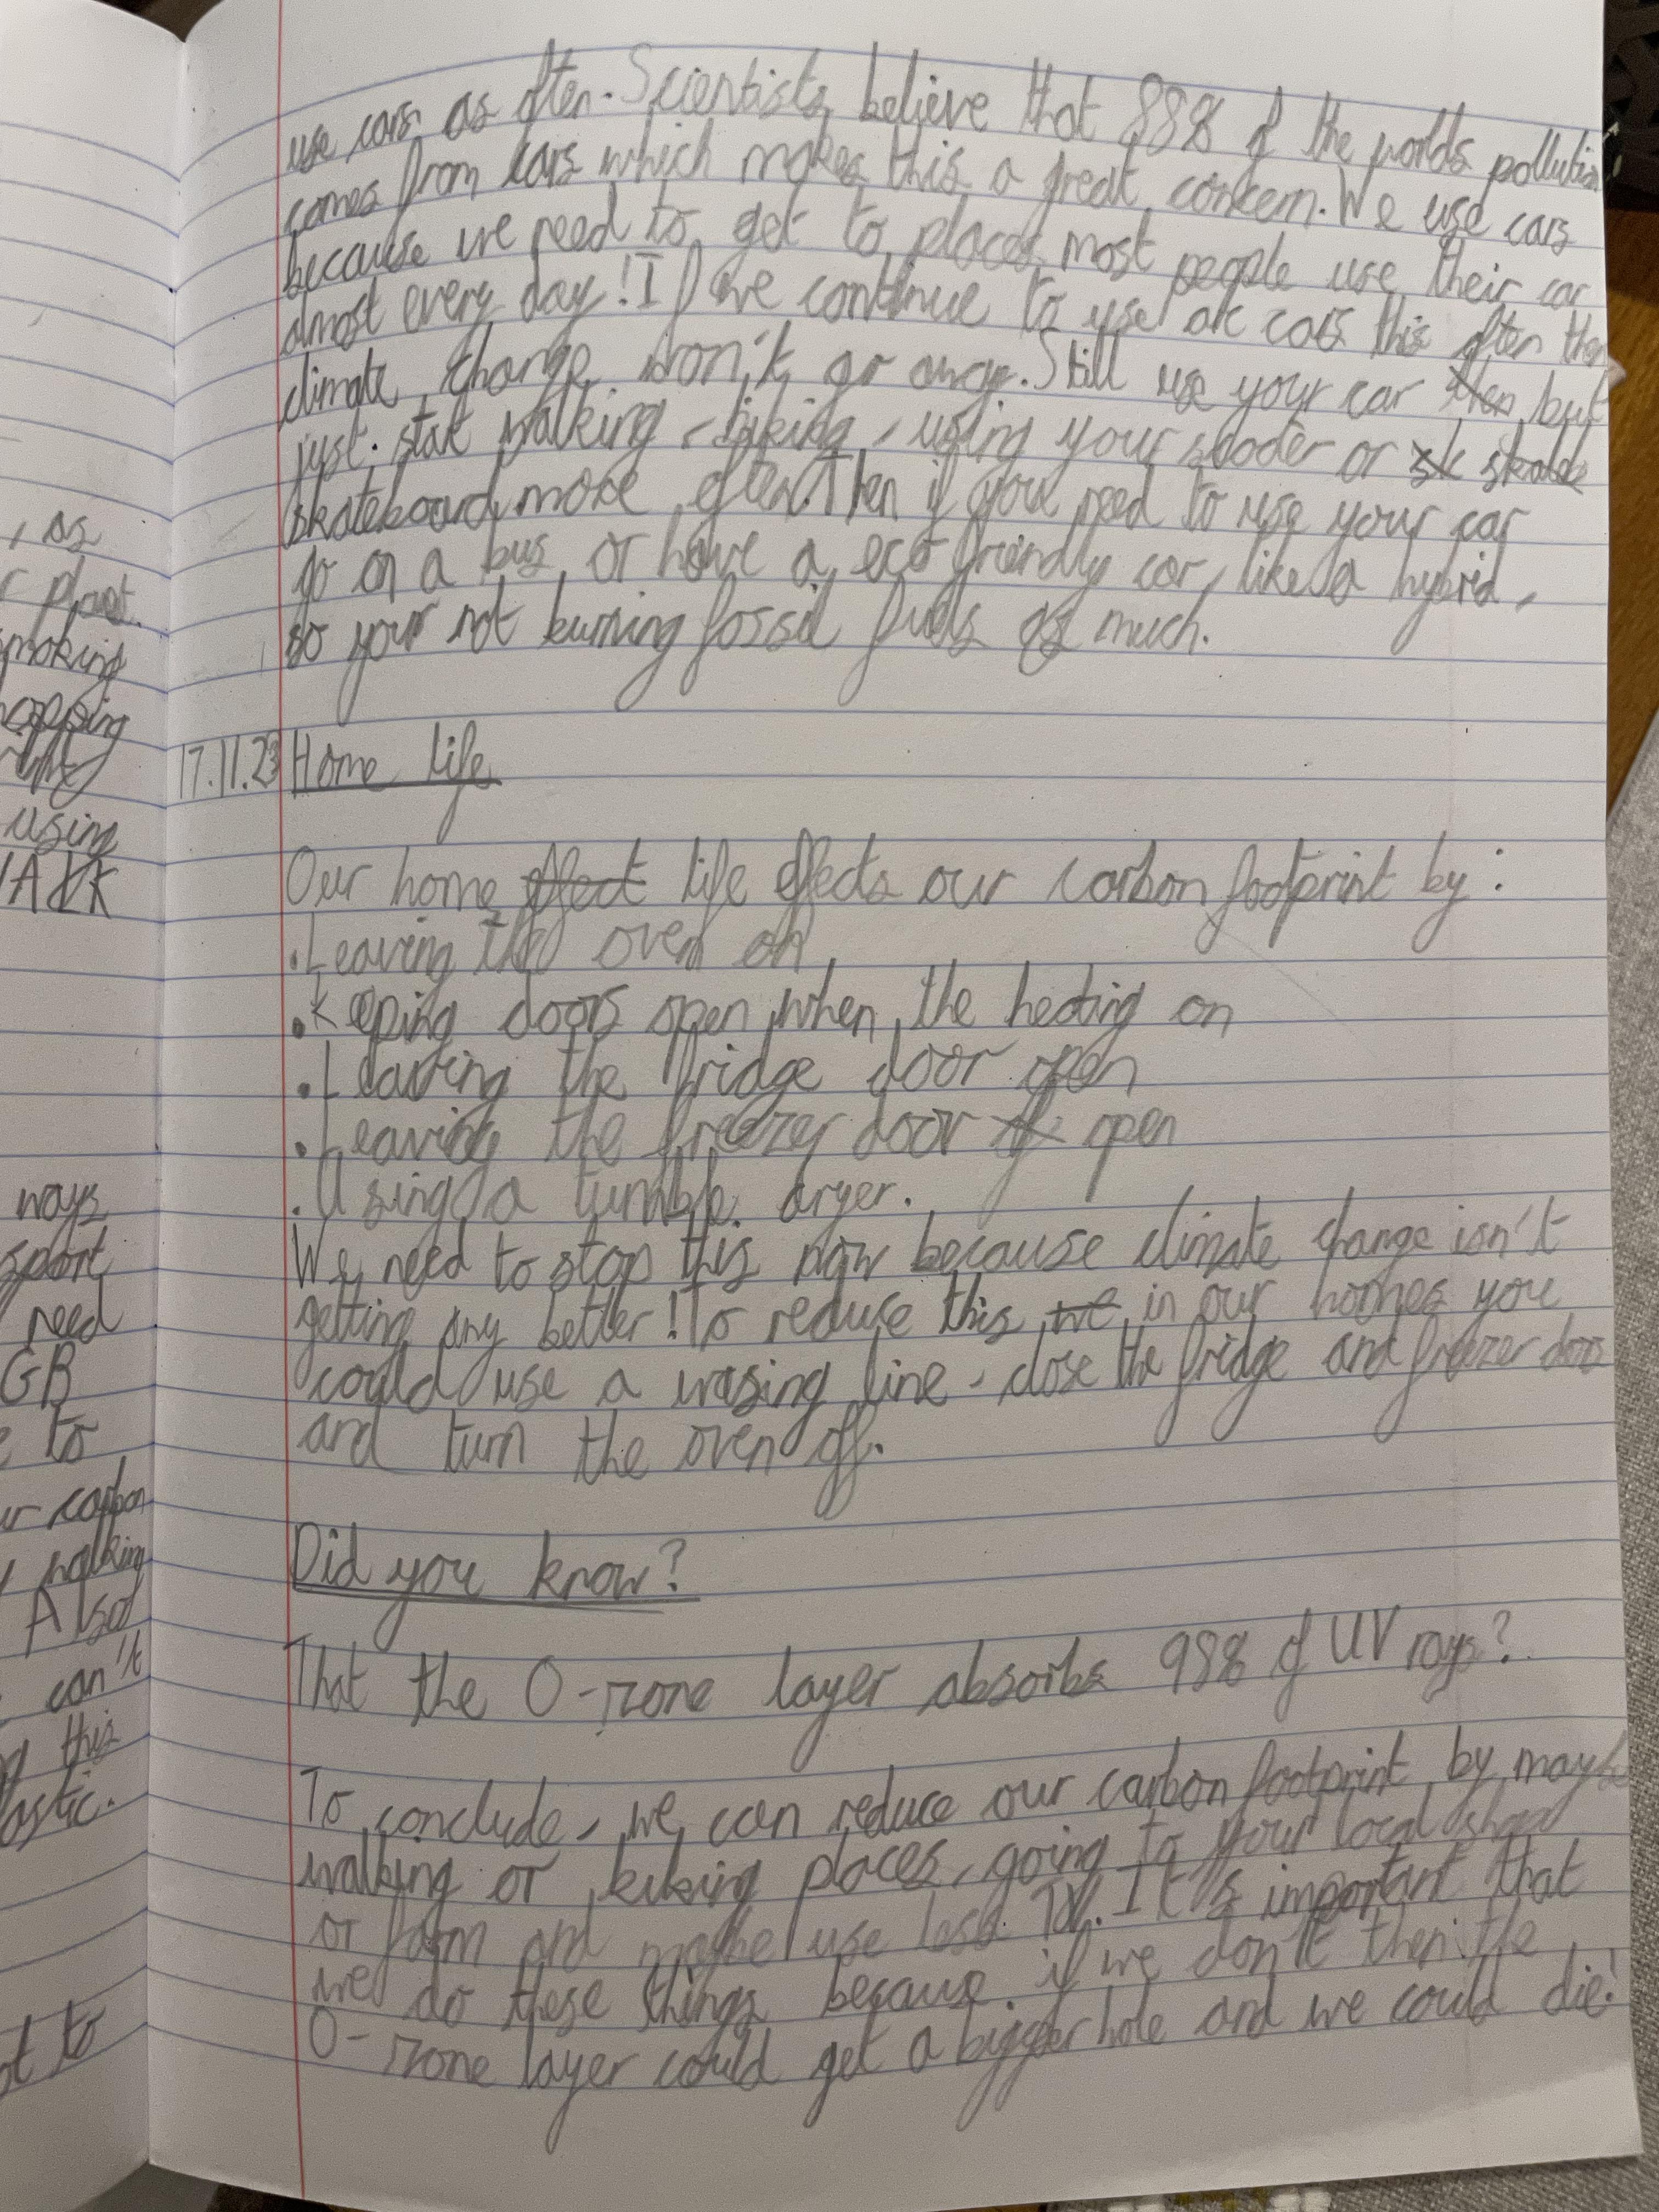 use cars as often. Scientists believe that 88% of the worlds pollution
comes from cars which makes this a great concern. We use cars
because we need to get to places most people use their car
almost every day! If we continue to use ak cars this often then
climate change won't go away. Still use your car then but
just start walking, biking, using your scooter or sk skateb
skateboard more often. Then if you need to use your car
go on a bus or have a eco friendly car, like a hybrid,
so your not burning fossil fuels as much.
17.11.23 Home life
Our home effect life effects our carbon footprint by:
. Leaving the oven on
. Keeping doors open when the heating on
. Leaving the fridge door open
. Leaving the freezer door of open
. Using a tumble dryer.
We need to stop this now because climate change isn't
getting any better! To reduce this we in our homes you
could use a wasing line, close the fridge and freezer door
and turn the oven off.
Did you know?
That the O-zone layer absorbs 98% of UV rays?
To conclude, we can reduce our carbon footprint by maybe
walking or biking places, going to your local shop
or farm and maybe use less TV. It's important that
we do these things because if we don't then the
O-zone layer could get a bigger hole and we could die!
, as
plast
smoking
opping
using
WALK
ways
sport
need
GB
to
ur carbon
walking
Also
can't
this
lastic.
to